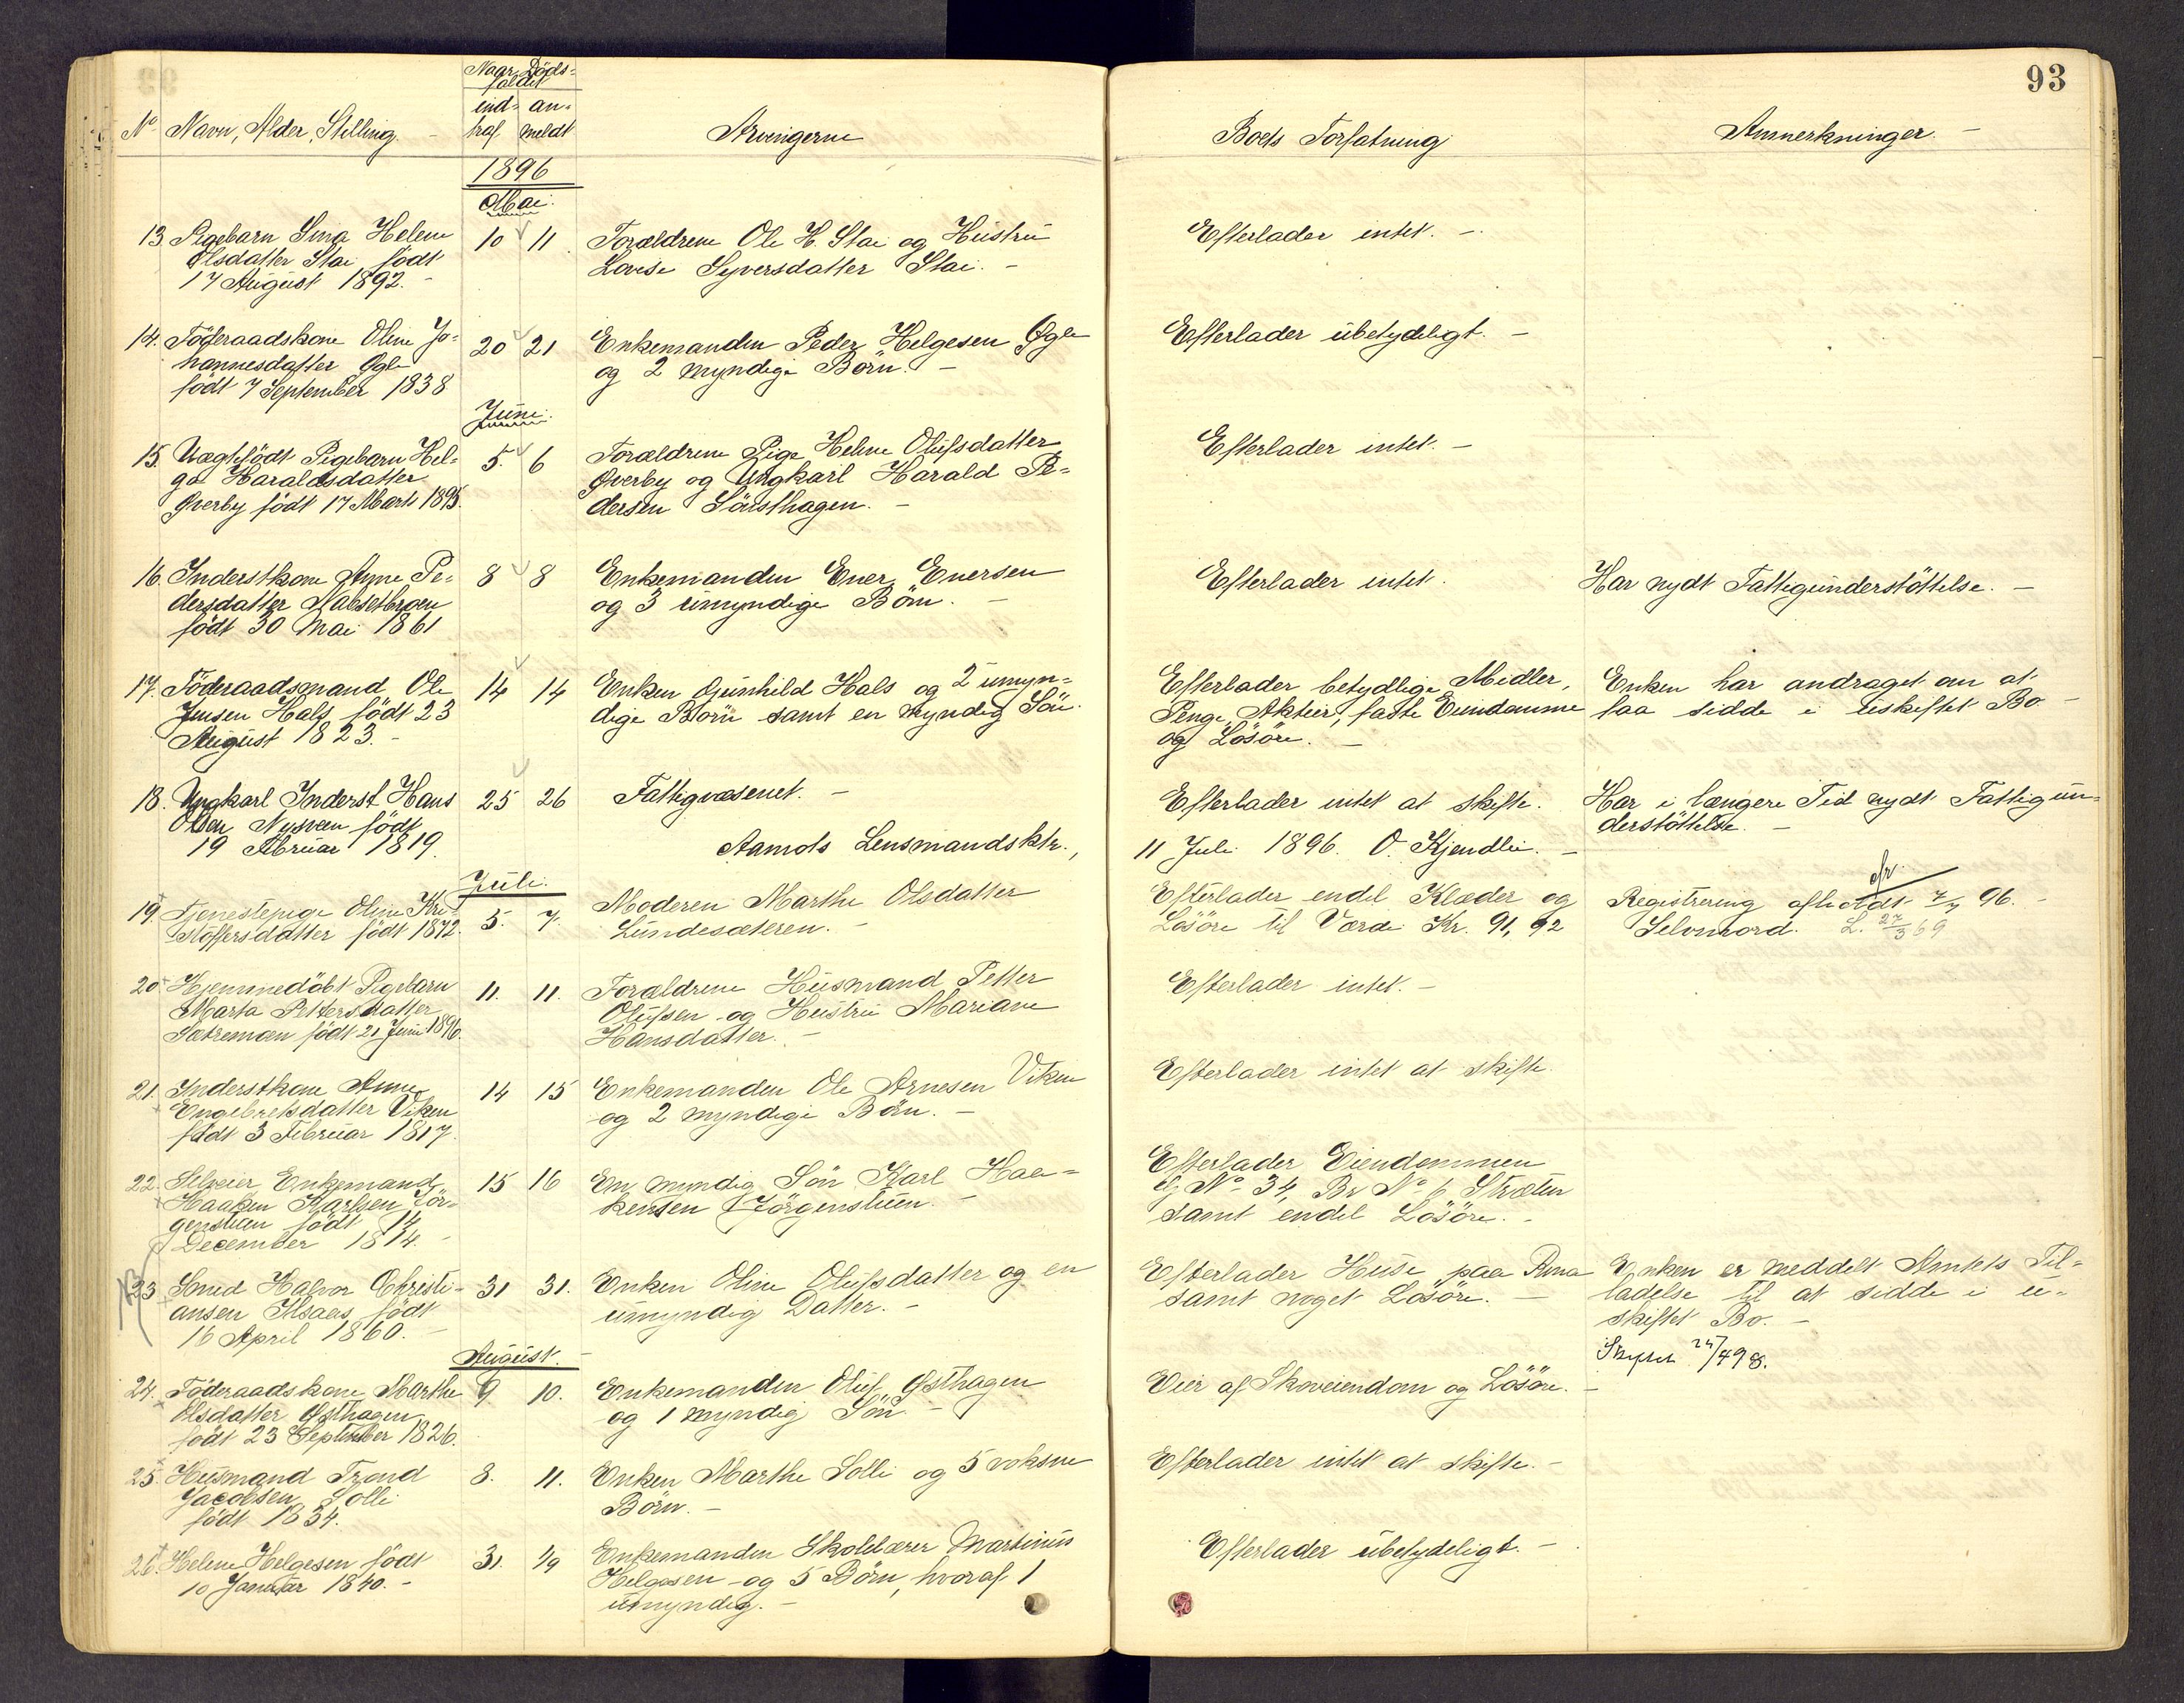 93
Naar Döds-
faldet
ind- an-
traf meldt
No Navn, Alder, Stilling. Arvingerne Boets Forfatning Anmerkninger. -
1896
Mai.
13. Pigebarn Sina Helene 10 11. Forældrene Ole H. Stai og Hustru Efterlader intet. -
Olsdatter Stai født Lovise Syversdatter Stai. -
17 August 1892. -
14. Föderaadskone Oline Jo- 20 21 Enkemanden Peder Helgesen Øgle Efterlader ubetydeligt. -
hannesdatter Øgle og 2 myndige Börn. -
födt 7 September 1838
Juni.
15. Uægtefödt Pigebarn Hel- 5. 6 Forældrene Pige Helene Olufsdatter Efterlader intet. -
ga Haraldsdatter Øverby og Ungkarl Harald Pe-
Øverby födt 17 Marts 1895. dersen -
16. Inderstkone Anne Pe- 8 8 Enkemanden Ener Enersen Efterlader intet. Har nydt Fattigunderstöttelse. -
dersdatter Nabsetbroen og 3 umyndige Börn. -
födt 30 Mai 1861
17. Föderaadsmand Ole 14 14 Enken Gunhild Hals og 2 umyn- Efterlader betydlige Midler, Enken har andraget om at
Jensen Hals födt 23 dige Börn samt en myndig Sön. Penge, Aktier, faste Eiendomme faa sidde i uskiftet Bo -
August 1823. - og Lösöre. -
18. Ungkarl Inderst Hans 25 26 Fattigvæsenet. - Efterlader intet at skifte. Har i længere Tid nydt Fattigun-
Olsen Nysveen födt derstöttelse. -
19 Februar 1819. Aamots Lensmandsktr., 11 Juli 1896. O. Kjendlie. -
Juli.
19. Tjenestepige Oline Kri- 5. 7. Moderen Marthe Olsdatter Efterlader endel Klæder og Registrering afholdt 7/7 96. -
stoffersdatter födt 1872. Lundesæteren. - Lösöre til Værdi Kr. 91,92 Selvmord. L. 27/3 69
20 Hjemmedöbt Pigebarn 11. 11. Forældrene Husmand Petter Efterlader intet. -
Marta Pettersdatter Olufsen og Hustru Mariane
Sætremoen födt 21 Juni 1896. Hansdatter. -
21. Inderstkone Anne 14 15 Enkemanden Ole Arnesen Viken Efterlader intet at skifte.
Engebretsdatter Viken og 2 myndige Börn. -
födt 3 Februar 1817.
22. Selveier Enkemand 15 16 En myndig Sön Karl Haa- Efterlader Eiendommen
Haaken Karlsen Jör- kensen Jörgenstuen. - G No 34, Br No 6 Stræten
genstuen födt 14 samt endel Lösöre. -
December 1814. -
23 Smed Halvor Christi- 31 31. Enken Oline Olufsdatter og en Efterlader Huse paa Rena Enken er meddelt Amtets Til-
ansen Ilsaas födt umyndig Datter. - samt noget Lösöre. - ladelse til at sidde i u-
16 April 1860. - skiftet Bo. -
August. -
24. Föderaadskone Marthe 9 10. Enkemanden Oluf Østhagen Eier af Skoveiendom og Lösöre. -
Olsdatter Østhagen og 1 myndig Sön. -
födt 23 September 1826.
25. Husmand Trond 8. 11. Enken Marthe Solli og 5 voksne Efterlader intet at skifte. -
Jacobsen Solli Börn. -
födt 1834.
26. Helene Helgesen födt 31. 1/9 Enkemanden Skolelærer Martinus Efterlader ubetydeligt. -
10 Januar 1840. - Helgesen og 5 Börn, hvoraf 1
umyndig. -